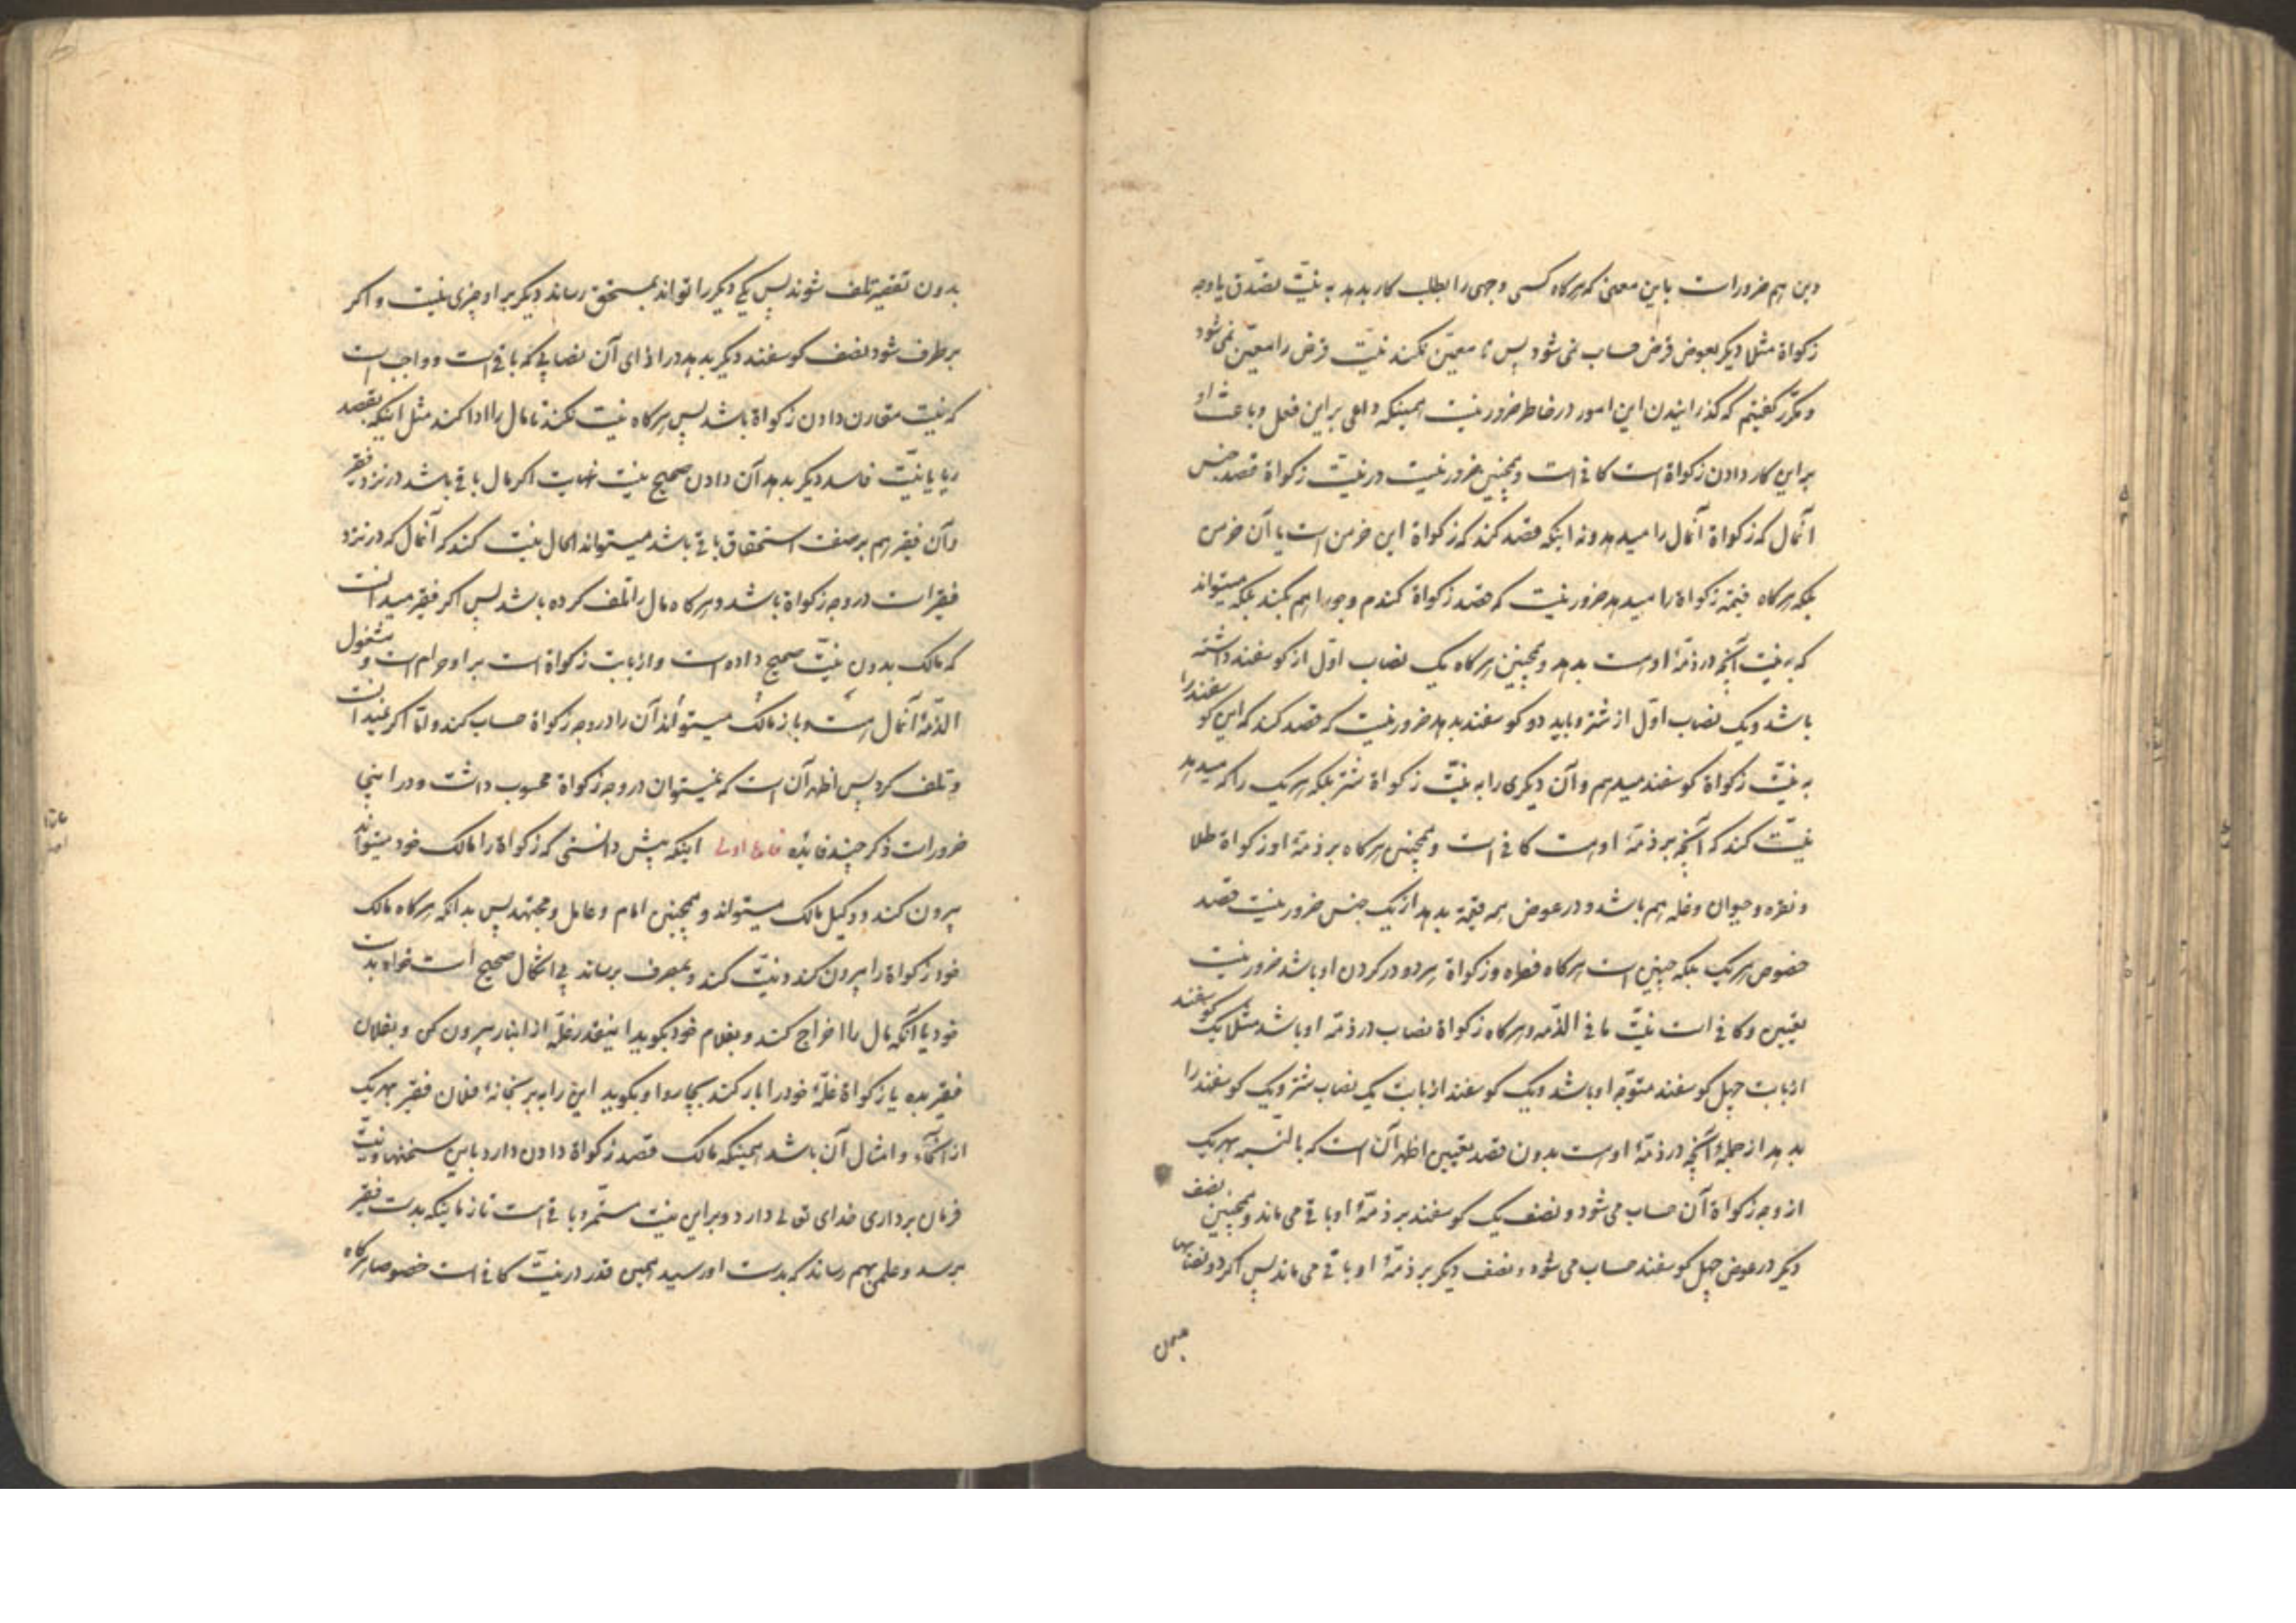 دین هم ضرور است باین معنی که هرکاه کسی وجهی را بطلب کار بدهد به نیّت تصدّق یا وجه
زکواة مثلا دیکر بعوض قرض حساب نمی شود پس تا معیّن نکند نیّت قرض را معیّن نمی شود
و مکرّر کفتیم که کذرانیدن این امور در خاطر ضرور نیست همینکه داعی بر این فعل و باعث او
بر این کار دادن زکواة است کافی است و همچنین ضرور نیست در نیّت زکواة قصد جنس
آنمال که زکواة آنمال را میدهد و نه اینکه قصد کند که زکواة این خرمن است یا آن خرمن
بلکه هرکاه قیمة زکواة را میدهد ضرور نیست که قصد زکواة کندم و جو را هم بکند بلکه میتواند
که به نیّت آنچه در ذمّهٔ اوست بدهد و همچنین هرکاه یک نصاب اوّل از کوسفند داشته
باشد و یک نصاب اوّل از شتر و باید دو کوسفند بدهد ضرور نیست که قصد کند که این کوسفند را
به نیّت زکواة کوسفند میدهم و آن دیکری را به نیّت زکواة شتر بلکه هر یک را که میدهد
نیّت کند که آنچه بر ذمّهٔ اوست کافی است و همچنین هرکاه بر ذمّهٔ او زکواة طلا
و نقره و حیوان و غله هم باشد و در عوض همه قیمة بدهد از یک جنس ضرور نیست قصد
خصوص هر یک بلکه چنین است هرکاه فطره و زکواة هر دو در کردن او باشد ضرور نیست
تعیین و کافی است نیّت ما فی الذّمه و هرکاه زکواة نصاب در ذمّه او باشد مثلا یک کوسفند
از بابت چهل کوسفند متوجّه او باشد و یک کوسفند از بابت یک نصاب شتر و یک کوسفند را
بدهد از جملهٔ آنچه در ذمّهٔ اوست بدون قصد تعیین اظهر آن است که بالنّسبه بهریک
از وجه زکواة آن حساب می شود و نصف یک کوسفند بر ذمّهٔ او باقی می ماند و همچنین نصف
دیکر در عوض چهل کوسفند حساب می شود و نصف دیکر بر ذمّهٔ او باقی می ماند پس اکر دو نصابها
بدون تقصیر تلف شوند پس یکی دیکر را تواند بمستحق رساند دیکر بر او چیزی نیست و اکر
برطرف شود نصف کوسفند دیکر بدهد در ازای آن نصابی که باقی است و واجب است
که نیّت مقارن دادن زکواة باشد پس هرکاه نیّت نکند تا مال را ادا کند مثل اینکه بقصد
ریا یا نیّت فاسد دیکر بدهد آن دادن صحیح نیست نهایت اکر مال باقی باشد در نزد فقیر
و آن فقیر هم بر صفت استحقاق باقی باشد میتواند الحال نیّت کند که آنمال که در نزد
فقیر است در وجه زکواة باشد و هرکاه مال را تلف کرده باشد پس اکر فقیر میدانست
که مالک بدون نیّت صحیح داده است و از بابت زکواة است بر او حرام است و مشغول
الذّمهٔ آنمال هست و باز مالک میتواند آن را در وجه زکواة حساب کند و امّا اکر نمیدانست
و تلف کرد پس اظهر آن است که نمیتوان در وجه زکواة محسوب داشت و در اینجا
ضرور است ذکر چند فایده فایدهٔ اولی اینکه پیش دانستی که زکواة را مالک خود میتواند
بیرون کند و وکیل مالک میتواند و همچنین امام و عامل و مجتهد پس بدانکه هرکاه مالک
خود زکواة را بیرون کند و نیّت کند و بمصرف برساند بی اشکال صحیح است خواه بدست
خود یا آنکه مال را اخراج کند و بغلام خود بکوید اینقدر غلّه از انبار بیرون کن و بفلان
فقیر بده یا زکواة غلّهٔ خود را بار کند بچاروا و بکوید این را ببر بخانهٔ فلان فقیر بهریک
از انحاء و امثال آن باشد همینکه مالک قصد زکواة دادن دارد باین سخنها و نیّت
فرمان برداری خدای تعالی دارد و بر این نیّت مستمر و باقی است تا زمانیکه بدست فقیر
برسد و علمی بهم رساند که بدست او رسید همین قدر در نیّت کافی است خصوصا هرکاه